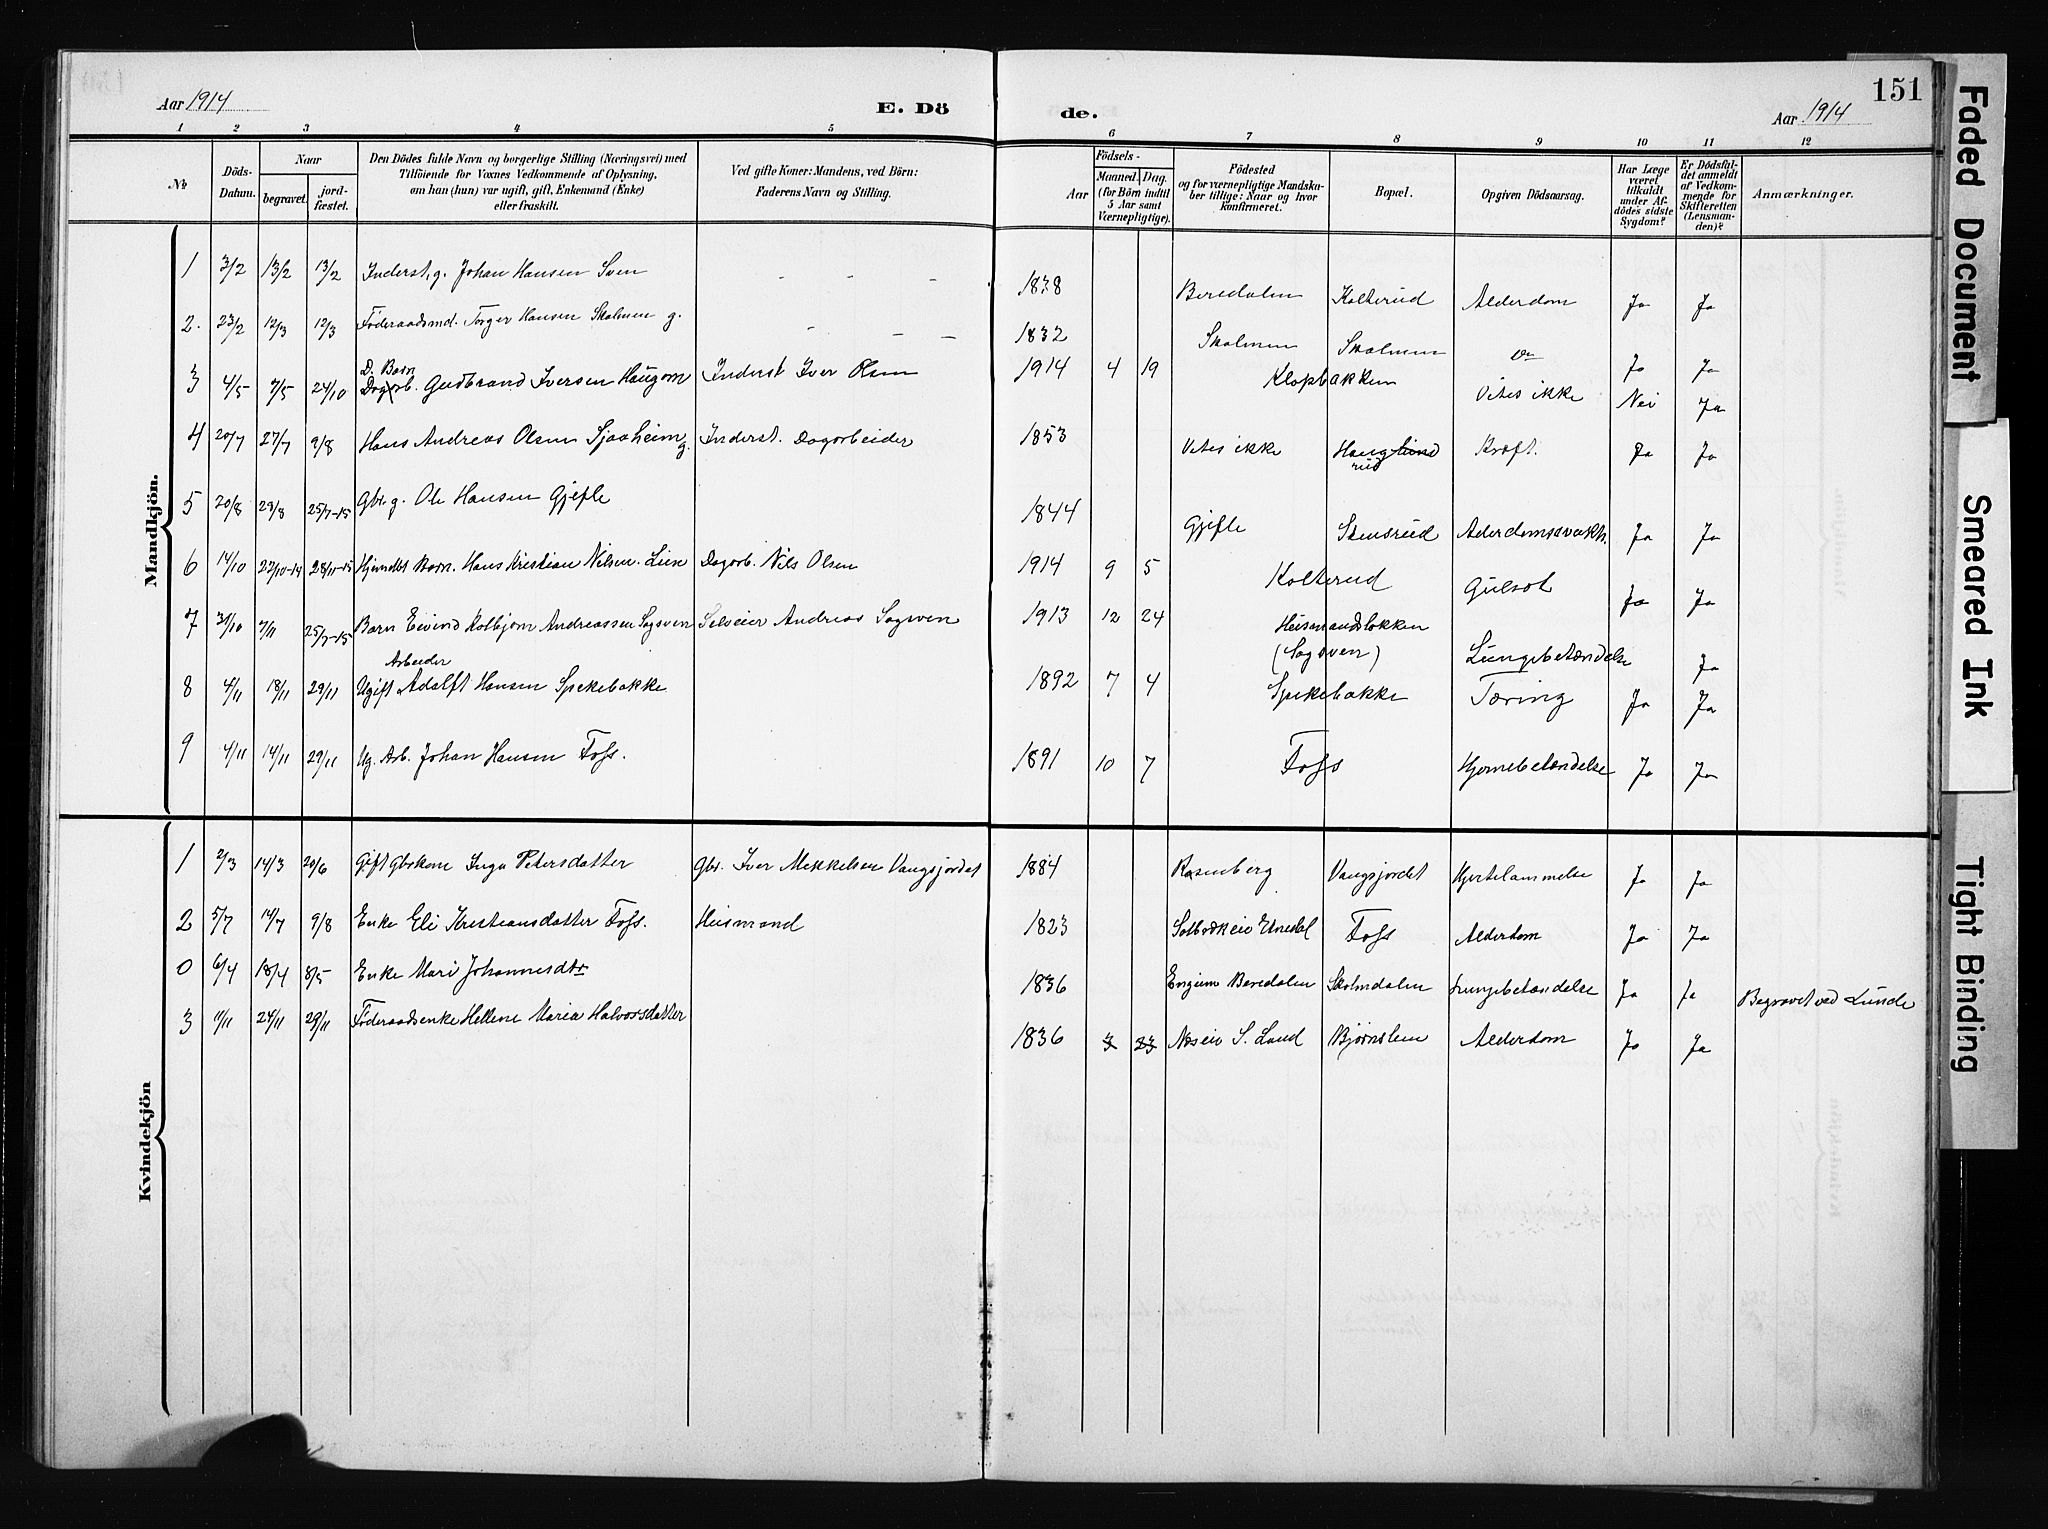 151
Aar 1914 E. Dö de. Aar 1914
1 2 3 4 5 6 7 8 9 10 11 12
No Döds-Datum. Naar begravet. jordfæstet. Den Dödes fulde Navn og borgerlige Stilling (Næringsvei) med Tilföiende for Voxnes Vedkommende af Oplysning, om han (hun) var ugift, gift, Enkemand (Enke) eller fraskilt. Ved gifte Koner: Mandens, ved Börn: Faderens Navn og Stilling. Födsels- Aar Maaned. Dag. (for Börn indtil 5 Aar samt Værnepligtige). Födested og for værnepligtige Mandskaber tillige: Naar og hvor konfirmeret. Bopæl. Opgiven Dödsaarsag. Har Læge været tilkaldt under Afdödes sidste Sygdom? Er Dödsfaldet anmeldt af Vedkommende for Skifteretten (Lensmanden)? Anmærkninger.
Mandkjön.
1 3/2 13/2 13/2 Inderst, g. Johan Hansen Sven - - - 1838 Beredalen Kolterud Alderdom Ja Ja
2. 23/2 12/3 12/3 Föderaadsmd. Torger Hansen Skolmen g. - - - 1832 Skolmen Skolmen Do Ja Ja
3 4/5 7/5 24/10 D. Barn Dagarb. Gudbrand Iversen Haugom Inderst Iver Olsen 1914 4 19 Klopbakken Vites ikke Nei Ja
4 20/7 27/7 9/8 Hans Andreas Olsen Sjaaheim g. Inderst. Dagarbeider 1853 Vites ikke Hauglund rud Kræft. Ja Ja
5 20/8 29/8 25/7-15 Gbr. g. Ole Hansen Gjefle 1844 Gjefle Stensrud Alderdomssvækk. Ja Ja
6 14/10 22/10-14 28/11-15 Hjemdbt Barn. Hans Kristian Nilsen. Lien Dagarb. Nils Olsen 1914 9 5 Kolterud Gulsot Ja Ja
7 31/10 7/11 25/7-15 Barn Eivind Kolbjørn Andreassen Sagsven Selveier Andreas Sagsven 1913 12 24 Heismandsbakken (Sagsven) Lungebetændelse Ja
8 4/11 18/11 29/11 Ugift Arbeider Adolf Hansen Spekebakke 1892 7 4 Spekebakke Tæring Ja Ja
9 4/11 14/11 29/11 Ug. Arb. Johan Hansen Fofs. 1891 10 7 Fofs Hjernebetændelse Ja Ja
Kvindekjön
1 2/3 14/3 20/6 Gift Gbrkone Inga Petersdatter Gbr. Iver Mekkelsen Vangsjordet 1884 Rosenberg Vangsjordet Hjertelammelse Ja Ja
2 5/7 14/7 9/8 Enke Eli Kristiansdatter Fofs. Heismand 1823 Solbrækeie Etnedal Fofs Alderdom Ja Ja
0 6/4 18/4 8/5 Enke Mari Johannesdtr 1836 Beredalen Skolmdalen Lungebetændelse Ja Ja Begravet ved Lunde
3 11/11 24/11 29/11 Föderaadsenke Hellene Maria Halvorsdatter 1836 3 23 S. Land Bjørnslien Alderdom Ja Ja
Faded Document
Smeared Ink
Tight Binding